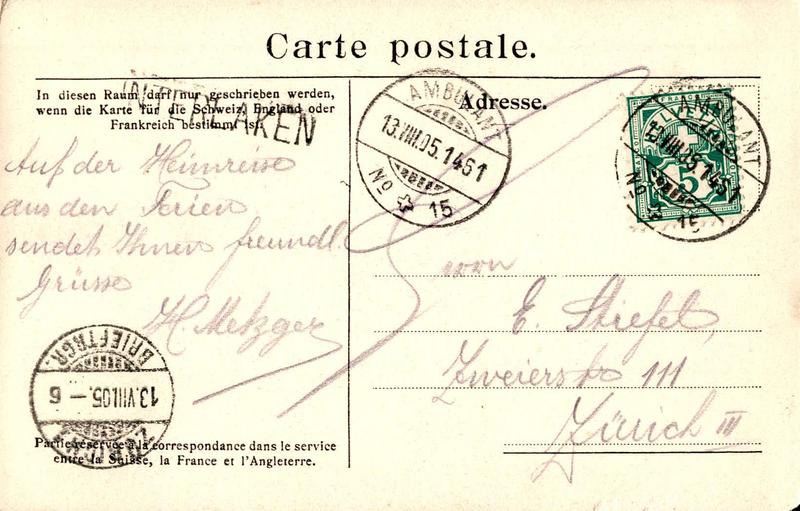 Carte postale.
In diesen Raum darf nur geschrieben werden,
wenn die Karte für die Schweiz, England oder
Frankreich bestimmt ist.
INTERLAKEN
AMBULANT
13.VIII.05.1461
No 15
Adresse.
FRANCO
HELVETIA
5
AMBULANT
13.VIII.05.1461
No 15
Auf der Heimreise
aus den Ferien
sendet Ihnen freundl.
Grüsse
H. Metzger
Herrn
E. Stiefel,
Zweierstr. 111
Zürich III
BRIEFTRGR.
13.VIII.05.–6
Partie réservée à la correspondance dans le service
entre la Suisse, la France et l'Angleterre.